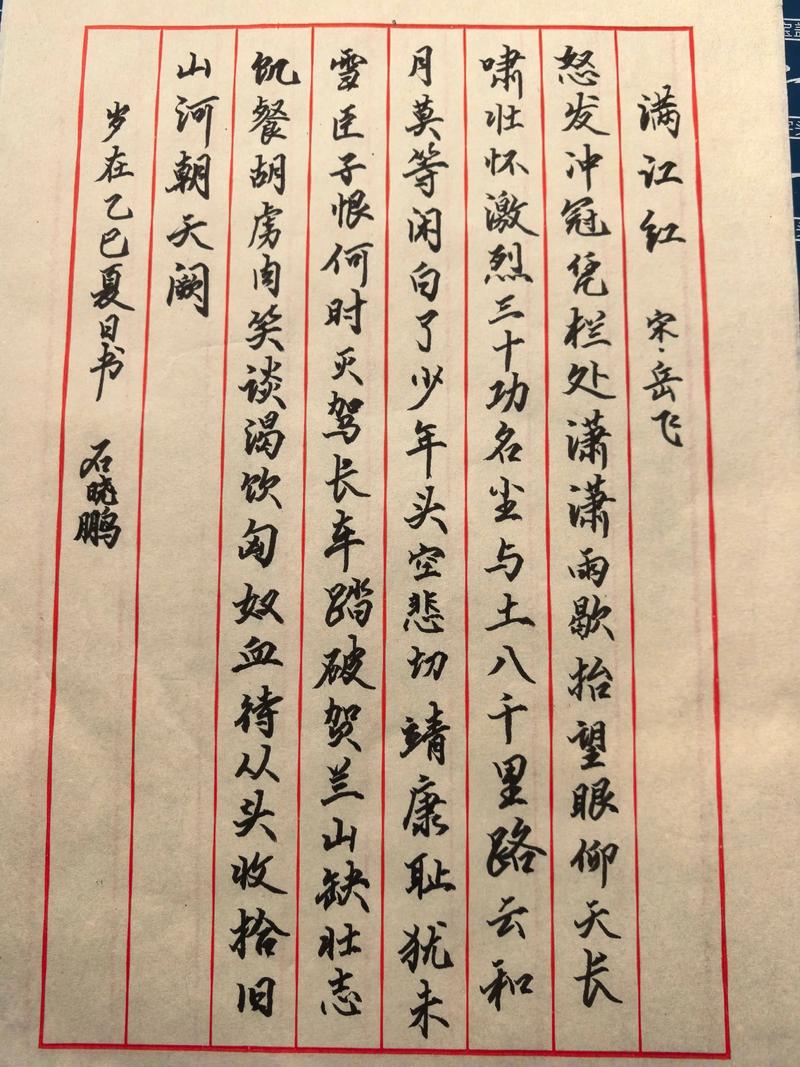 满江红 宋·岳飞
怒发冲冠凭栏处潇潇雨歇抬望眼仰天长
啸壮怀激烈三十功名尘与土八千里路云和
月莫等闲白了少年头空悲切靖康耻犹未
雪臣子恨何时灭驾长车踏破贺兰山缺壮志
饥餐胡虏肉笑谈渴饮匈奴血待从头收拾旧
山河朝天阙
岁在乙巳夏日书 石晓鹏